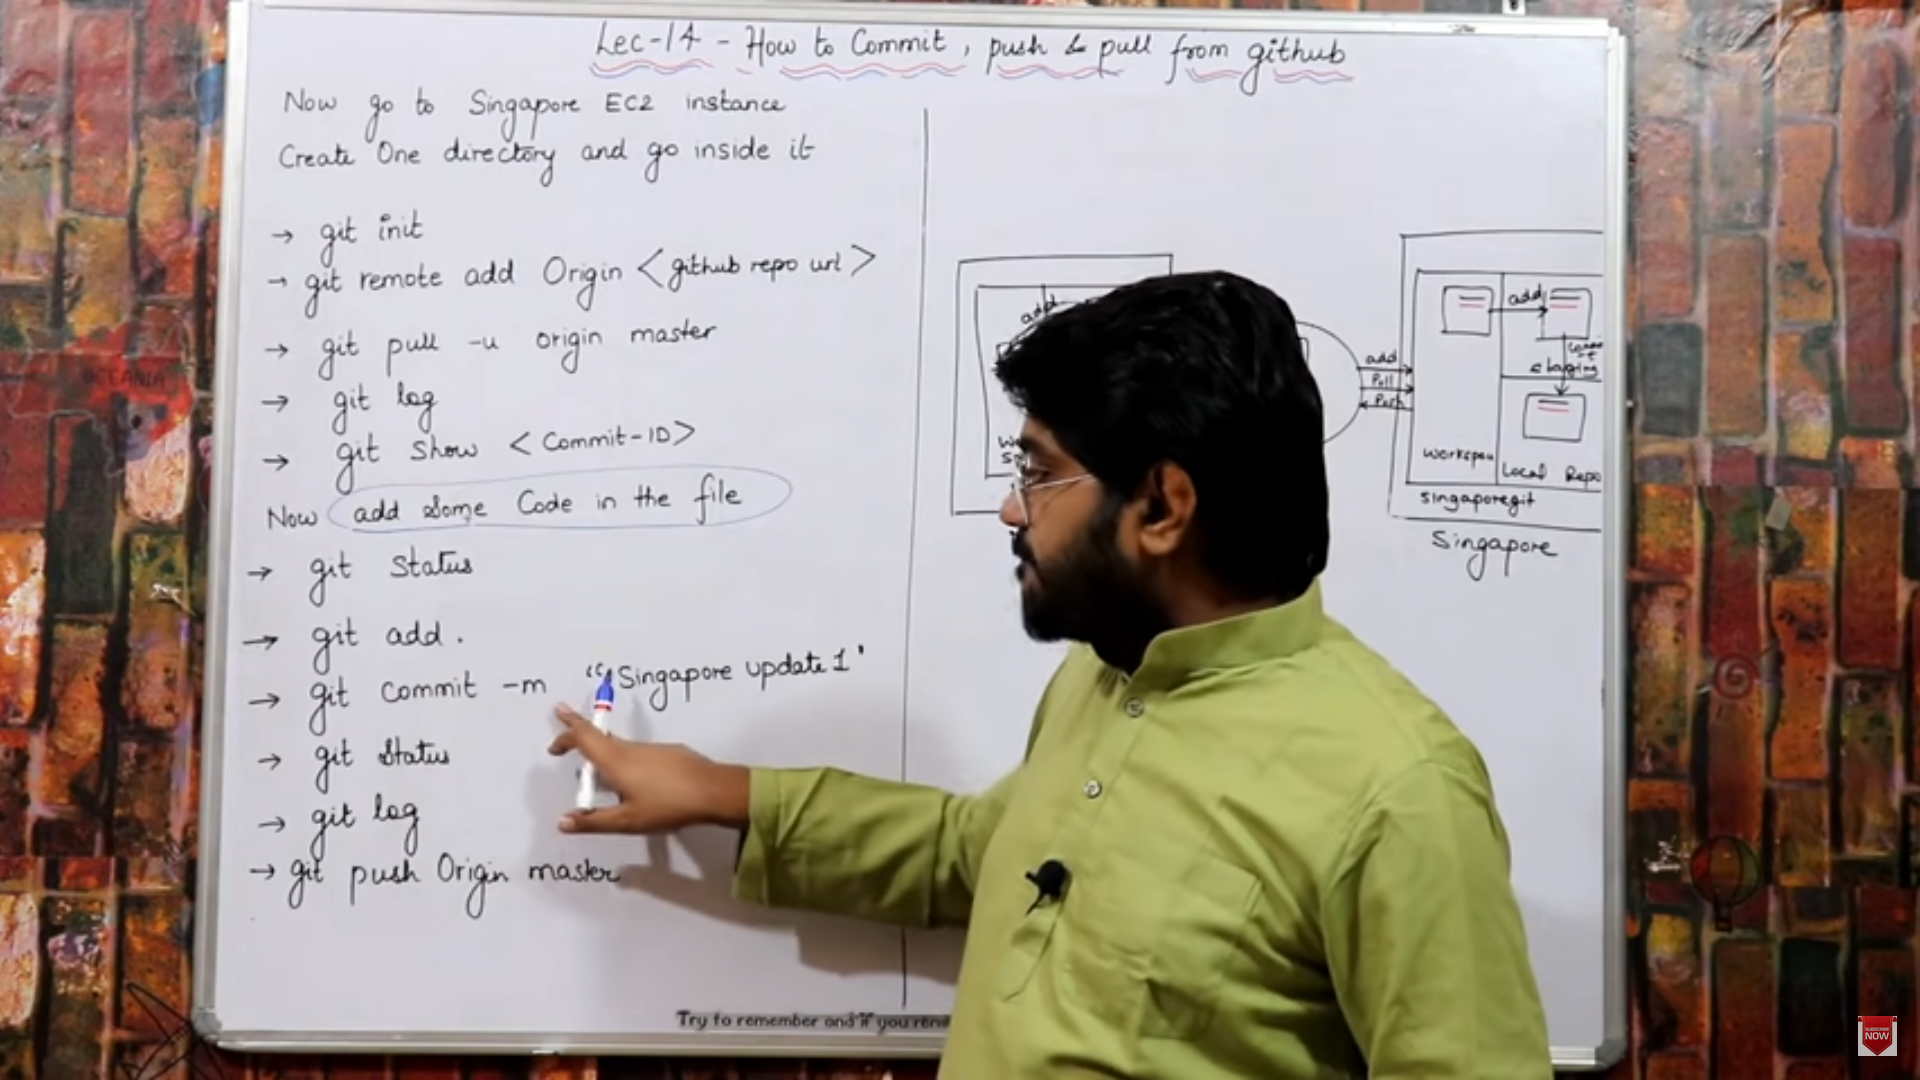 Lec-14 - How to Commit, push & pull from github
Now go to Singapore EC2 instance
Create One directory and go inside it
→ git init
→ git remote add Origin <github repo url>
→ git pull -u origin master
→ git log
→ git show <Commit-ID>
Now add some Code in the file
→ git status
→ git add .
→ git commit -m "Singapore update 1"
→ git status
→ git log
→ git push Origin master
add
add
Pull
Push
add
staging
Local Repo
singaporegit
Singapore
OCEANIA
Try to remember and if you
SUBSCRIBE
NOW